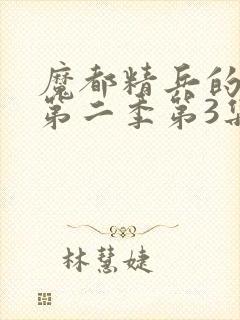 魔都精兵的
第二季第3集
林慧婕